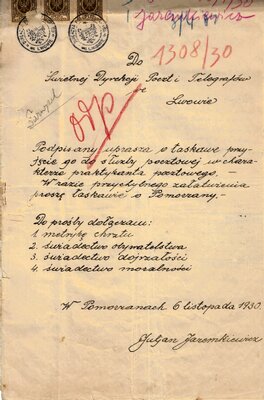 Jaremkiewicz
1308/30
Do
Świetnej Dyrekcji Poczt i Telegrafów
we
Lwowie
odp
Podpisany uprasza o łaskawe przy-
jęcie go do służby pocztowej w cha-
rakterze praktykanta pocztowego. –
W razie przychylnego załatwienia
proszę łaskawie o Pomorzany.
Do prośby dołączam:
1 metrykę chrztu
2. świadectwo obywatelstwa
3. świadectwo dojrzałości
4. świadectwo moralności
W Pomorzanach 6 listopada 1930.
Juljan Jaremkiewicz